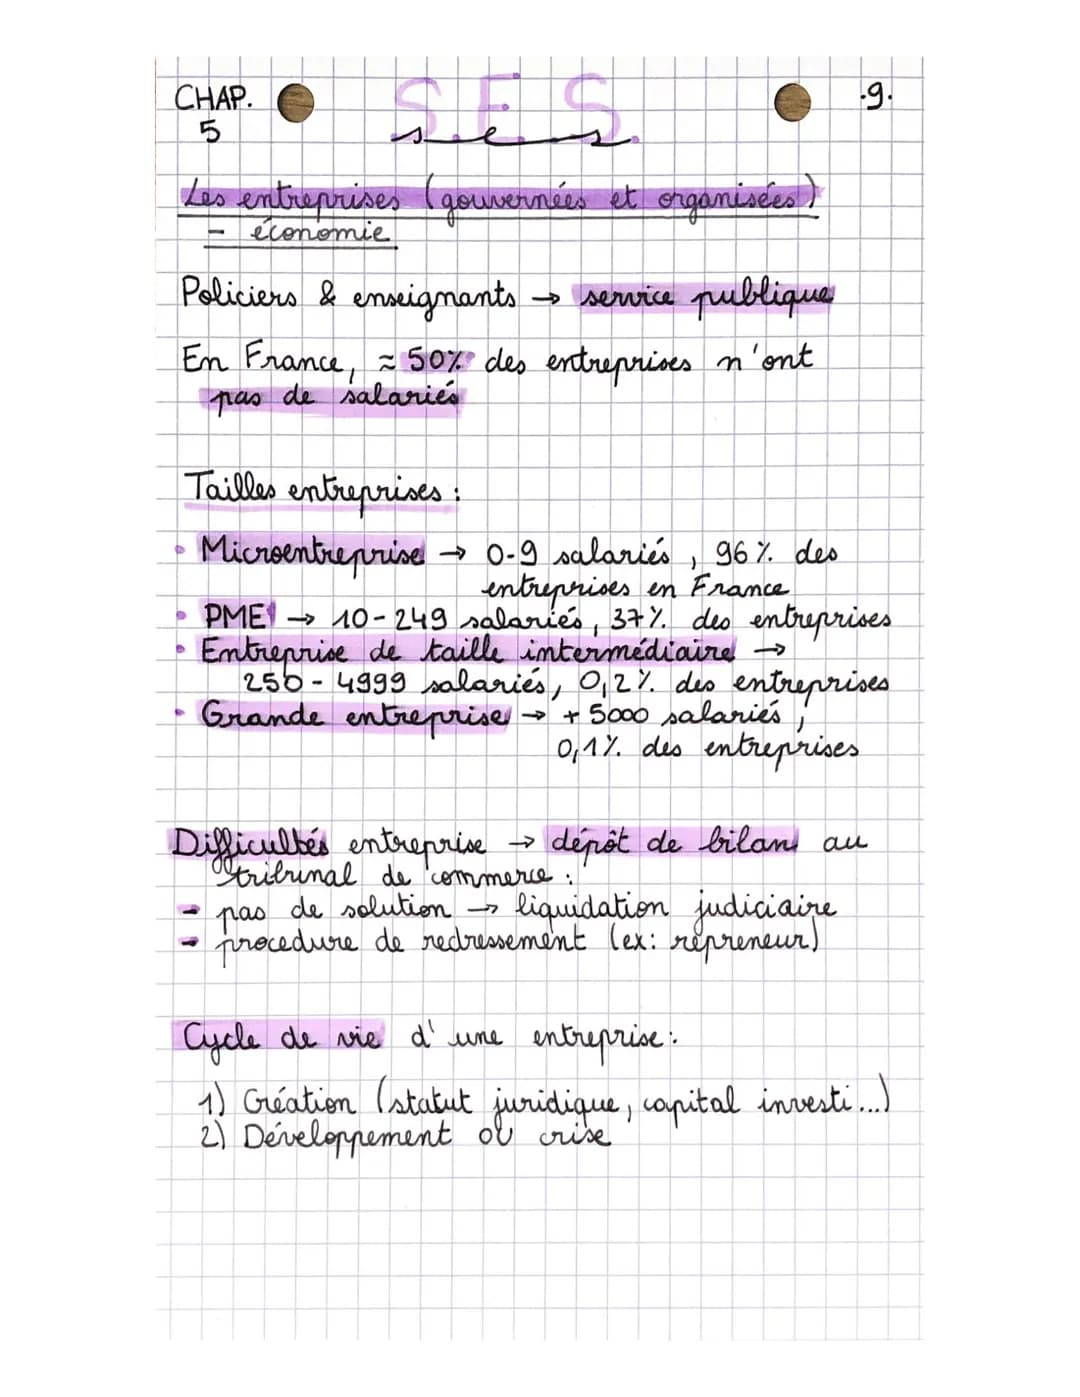 CHAP.
5
S.E.S.
ses
.9.
Les entreprises (gouvernées et organisées)
- économie
Policiers & enseignants → service publique
En France, ≈ 50% des entreprises n'ont
pas de salariés
Tailles entreprises :
• Microentreprise → 0-9 salariés, 96% des
entreprises en France
• PME → 10-249 salariés, 37% des entreprises
• Entreprise de taille intermédiaire →
250 - 4999 salariés, 0,2% des entreprises
• Grande entreprise → + 5000 salariés,
0,1% des entreprises
Difficultés entreprise → dépôt de bilan au
tribunal de commerce :
- pas de solution → liquidation judiciaire
- procédure de redressement (ex: repreneur)
Cycle de vie d'une entreprise :
1) Création (statut juridique, capital investi...)
2) Développement ou crise